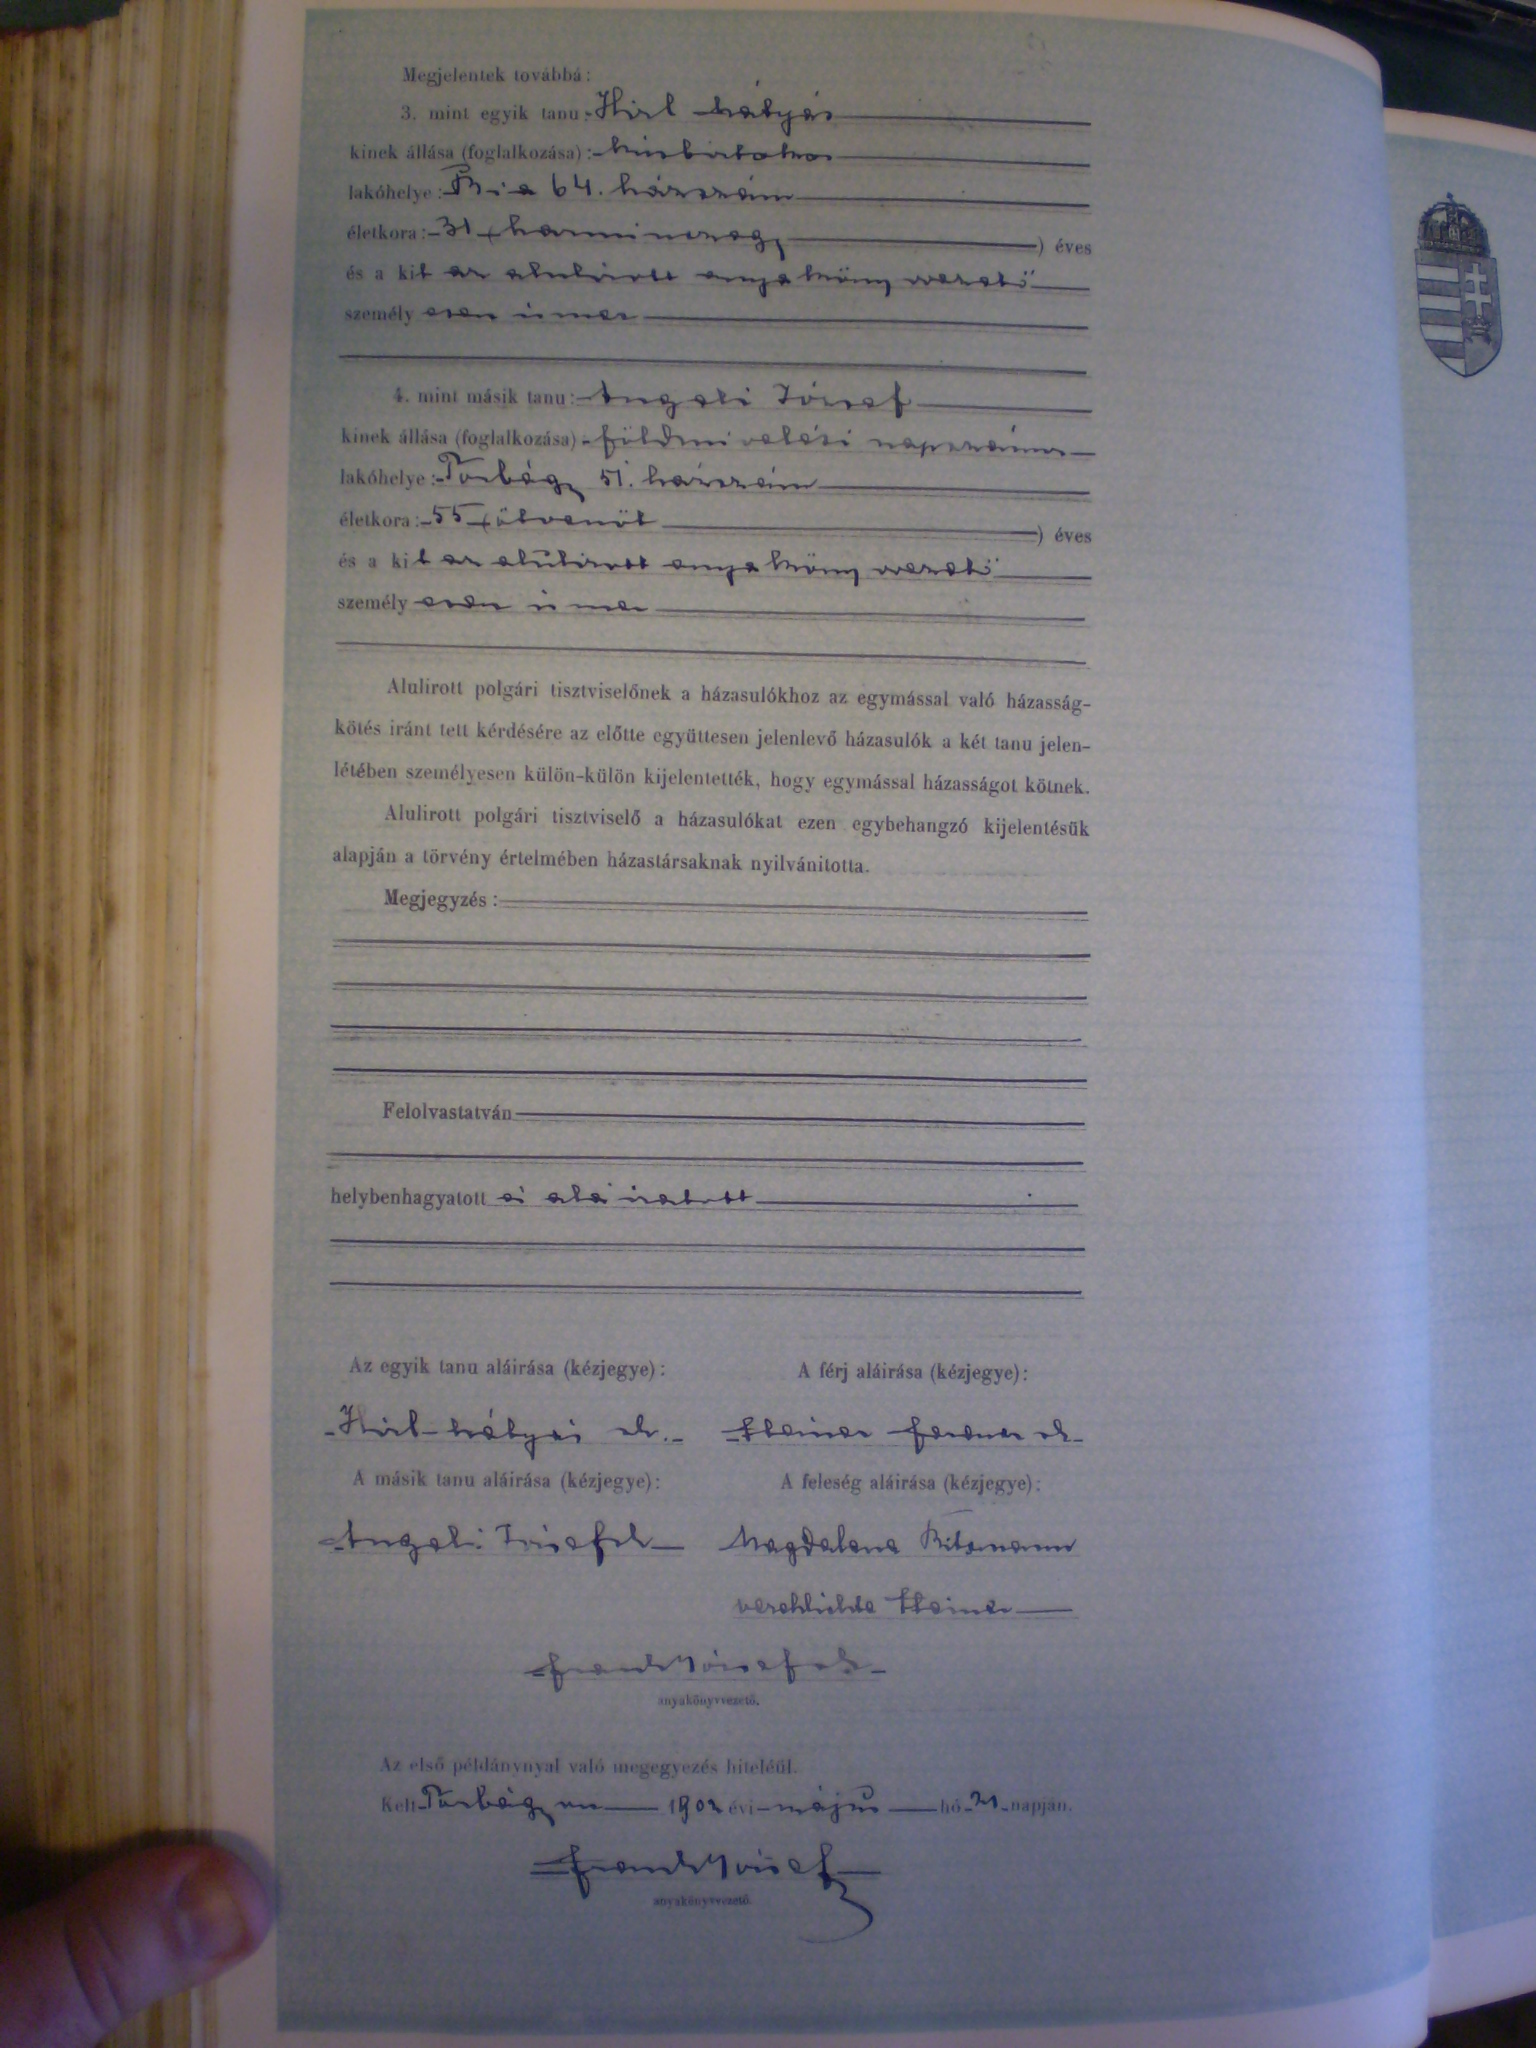 Megjelentek továbbá:
3. mint egyik tanu: Hirl Mátyás
kinek állása (foglalkozása): kisbirtokos
lakóhelye: Bia 64. házszám
életkora: 31 (harmincegy) éves
és a kit az alulirott anyakönyvvezető
személyesen ismer
4. mint másik tanu: Angeli József
kinek állása (foglalkozása) földmivelési napszámos
lakóhelye: Torbágy 51. házszám
életkora: 55 (ötvenöt) éves
és a kit az alulirott anyakönyvvezető
személyesen ismer
Alulirott polgári tisztviselőnek a házasulókhoz az egymással való házasság-
kötés iránt tett kérdésére az előtte együttesen jelenlevő házasulók a két tanu jelen-
létében személyesen külön-külön kijelentették, hogy egymással házasságot kötnek.
Alulirott polgári tisztviselő a házasulókat ezen egybehangzó kijelentésük
alapján a törvény értelmében házastársaknak nyilvánitotta.
Megjegyzés:
Felolvastatván
helybenhagyatott és aláiratott
Az egyik tanu aláirása (kézjegye): A férj aláirása (kézjegye):
Hirl Mátyás sk. Steiner Ferencz sk
A másik tanu aláirása (kézjegye): A feleség aláirása (kézjegye):
Angeli József sk Magdalena
verehlichte Steiner
Frank József sk
anyakönyvvezető.
Az első példánynyal való megegyezés hiteléül.
Kelt Torbágyon 1902 évi május hó 21 napján.
Frank József
anyakönyvvezető.